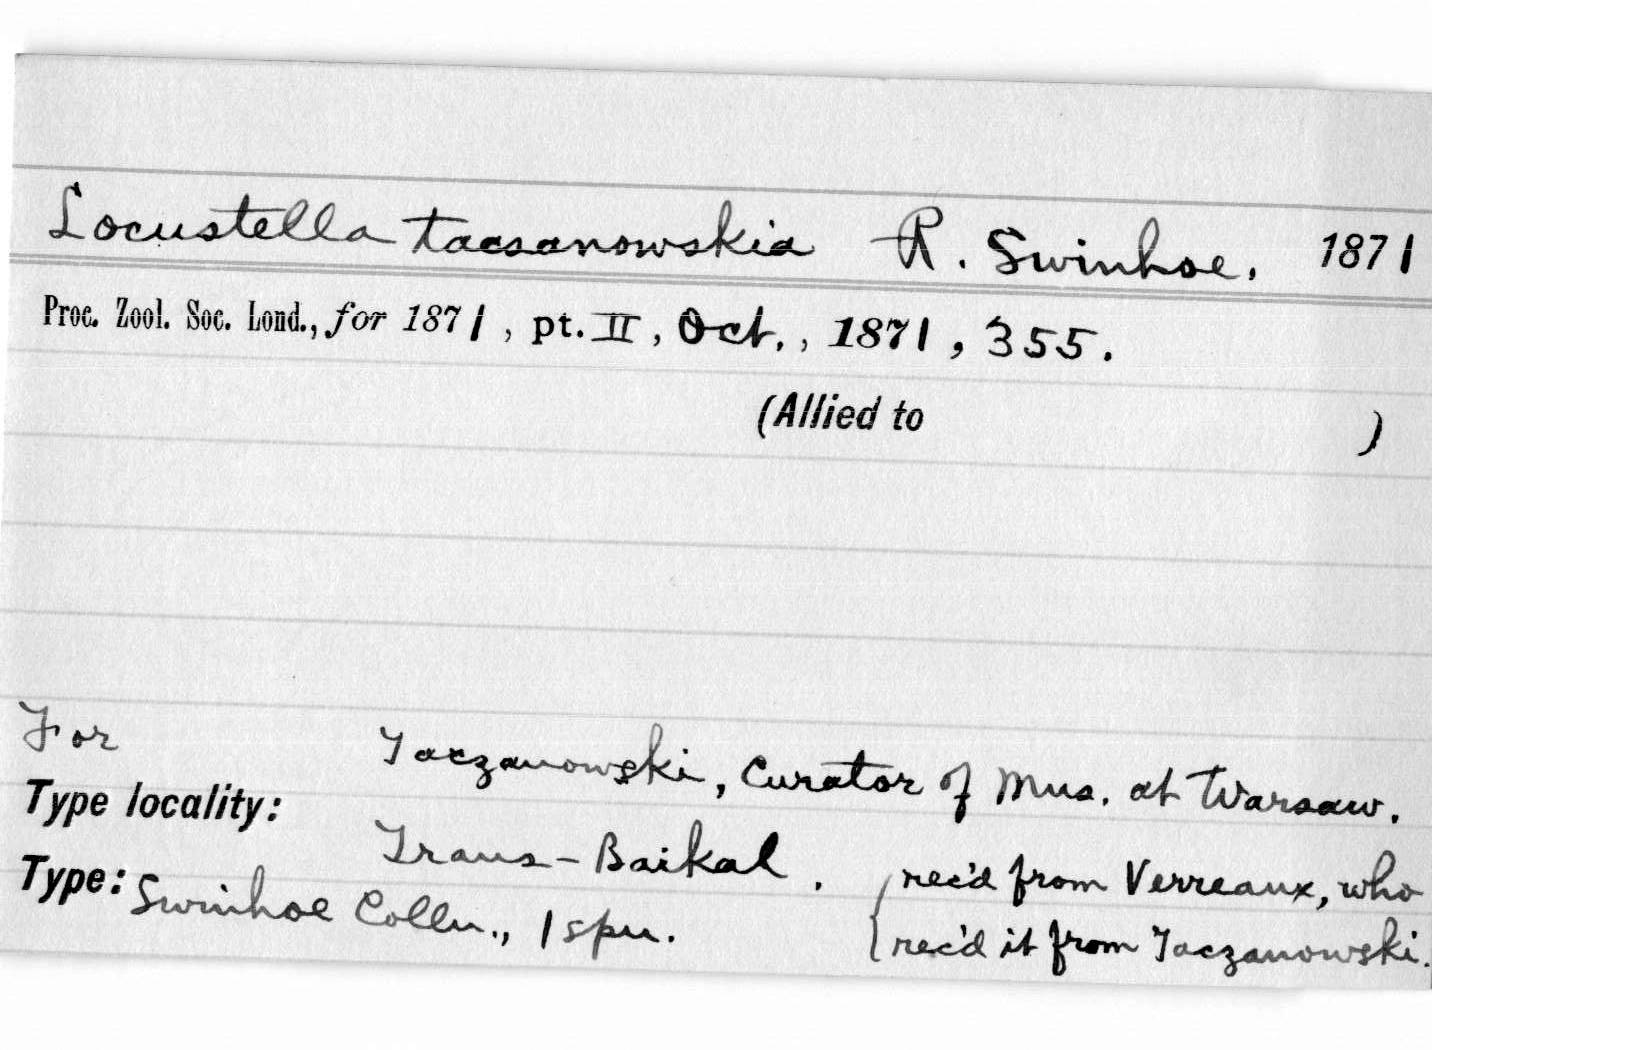 Locustella tacsanowskia R. Swinhoe. 1871
Proc. Zool. Soc. Lond., for 1871, pt. II, Oct., 1871, 355.
(Allied to )
For Taczanowski, Curator of Mus. at Warsaw.
Type locality: Trans-Baikal.
Type: Swinhoe Colln., 1 spn. {rec'd from Verreaux, who
rec'd it from Taczanowski.